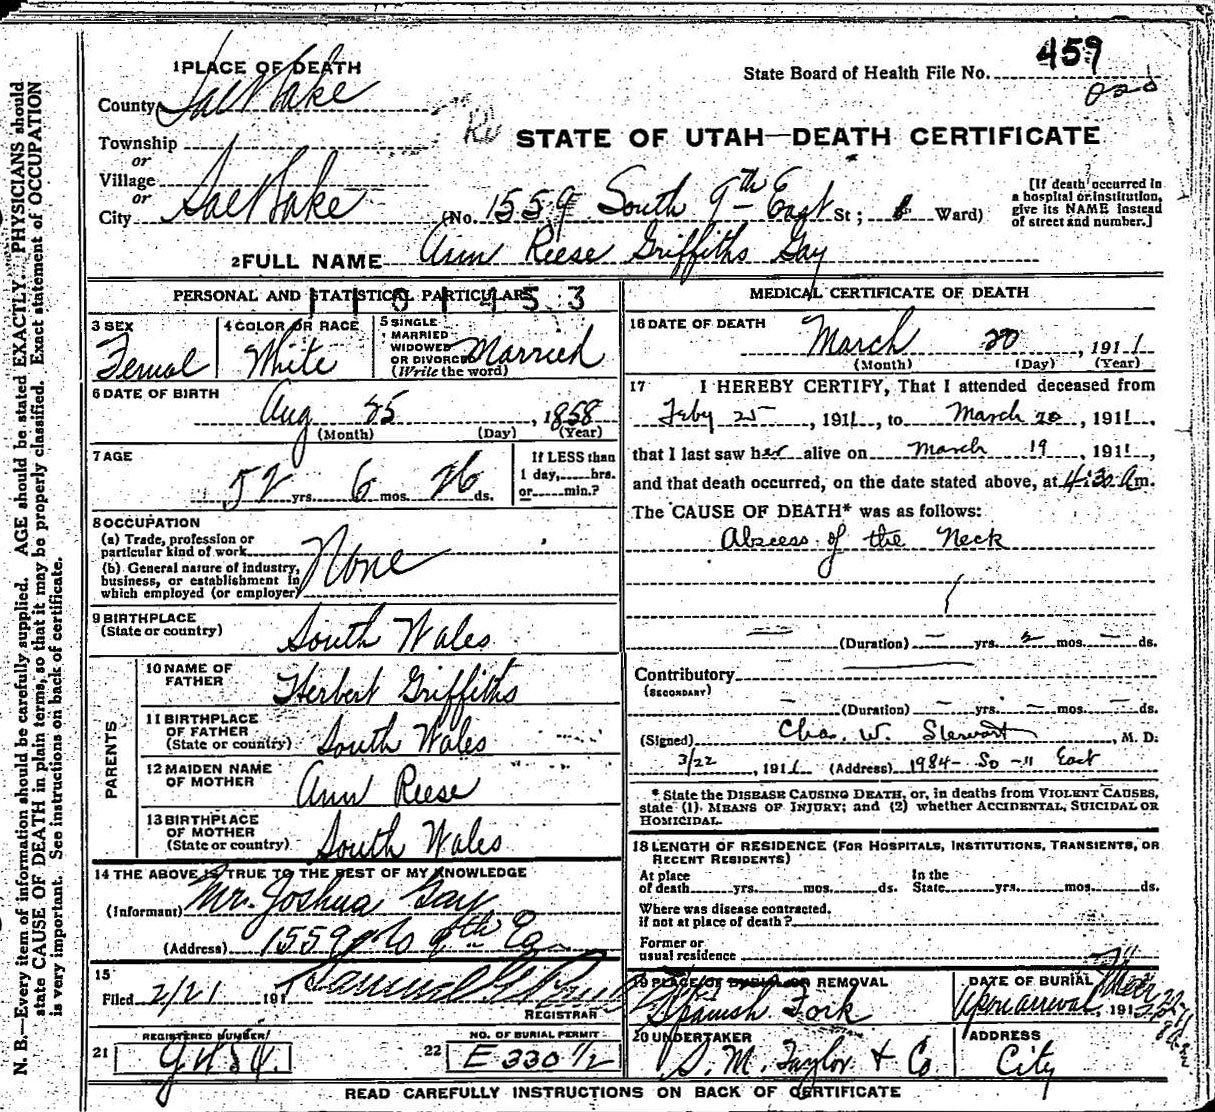 N. B.—Every item of information should be carefully supplied. AGE should be stated EXACTLY. PHYSICIANS should
state CAUSE OF DEATH in plain terms, so that it may be properly classified. Exact statement of OCCUPATION
is very important. See instructions on back of certificate.
1 PLACE OF DEATH
County Salt Lake
Township
or
Village
or
City Salt Lake
State Board of Health File No. 459
STATE OF UTAH—DEATH CERTIFICATE
(No. 1559 South 9th East St; Ward)
[If death occurred in
a hospital or institution,
give its NAME instead
of street and number.]
2 FULL NAME Ann Reese Griffiths Gay
PERSONAL AND STATISTICAL PARTICULARS
3 SEX
Femal
4 COLOR OR RACE
White
5 SINGLE
MARRIED
WIDOWED
OR DIVORCED
(Write the word)
Married
6 DATE OF BIRTH
Aug 25, 1858
(Month) (Day) (Year)
7 AGE
52 yrs. 6 mos. 26 ds.
If LESS than
1 day,......hrs.
or......min.?
8 OCCUPATION
(a) Trade, profession or
particular kind of work
(b) General nature of industry,
business, or establishment in
which employed (or employer)
None
9 BIRTHPLACE
(State or country)
South Wales
PARENTS
10 NAME OF
FATHER
Herbert Griffiths
11 BIRTHPLACE
OF FATHER
(State or country)
South Wales
12 MAIDEN NAME
OF MOTHER
Ann Reese
13 BIRTHPLACE
OF MOTHER
(State or country)
South Wales
14 THE ABOVE IS TRUE TO THE BEST OF MY KNOWLEDGE
(Informant) Mr. Joshua Gay
(Address) 1559 So 9th Ea
15
Filed 2/21 191
REGISTRAR
REGISTERED NUMBER
21
NO. OF BURIAL PERMIT
22 E 330 1/2
MEDICAL CERTIFICATE OF DEATH
16 DATE OF DEATH
March 20, 1911
(Month) (Day) (Year)
17 I HEREBY CERTIFY, That I attended deceased from
Feby 25, 1911, to March 20, 1911,
that I last saw her alive on March 19, 1911,
and that death occurred, on the date stated above, at 4:30 Am.
The CAUSE OF DEATH* was as follows:
Abscess of the Neck
(Duration) — yrs. 2 mos. — ds.
Contributory
(SECONDARY)
— (Duration) — yrs. — mos. — ds.
(Signed) Chas. W. Stewart, M. D.
3/22, 1911 (Address) 1984- So -11 East
* State the DISEASE CAUSING DEATH, or, in deaths from VIOLENT CAUSES,
state (1) MEANS OF INJURY; and (2) whether ACCIDENTAL, SUICIDAL OR
HOMICIDAL.
18 LENGTH OF RESIDENCE (FOR HOSPITALS, INSTITUTIONS, TRANSIENTS, OR
RECENT RESIDENTS)
At place
of death......yrs......mos......ds.
In the
State......yrs......mos......ds.
Where was disease contracted,
if not at place of death?
Former or
usual residence
19 PLACE OF BURIAL OR REMOVAL
Spanish Fork
DATE OF BURIAL
Upon arrival, 191
20 UNDERTAKER
S. M. Taylor & Co
ADDRESS
City
READ CAREFULLY INSTRUCTIONS ON BACK OF CERTIFICATE